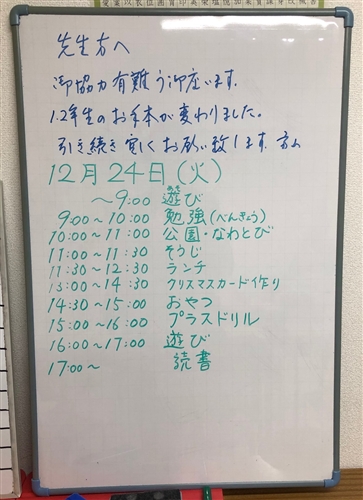 先生方へ
御協力有難う御座います。
1.2年生のお手本が変わりました。
引き続き宜しくお願い致します。
12月24日(火)
～9:00 遊び
あそ
9:00～10:00 勉強(べんきょう)
10:00～11:00 公園・なわとび
11:00～11:30 そうじ
11:30～12:30 ランチ
13:00～14:30 クリスマスカード作り
14:30～15:00 おやつ
15:00～16:00 プラスドリル
16:00～17:00 遊び
17:00～ 読書